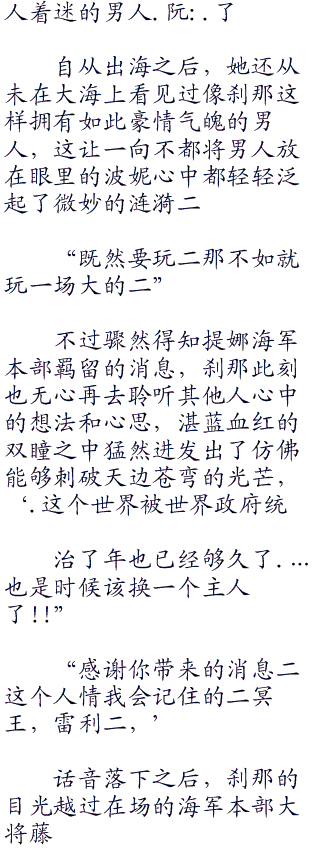 人着迷的男人.阮:.了
自从出海之后，她还从
未在大海上看见过像刹那这
样拥有如此豪情气魄的男
人，这让一向不都将男人放
在眼里的波妮心中都轻轻泛
起了微妙的涟漪二
“既然要玩二那不如就
玩一场大的二”
不过骤然得知提娜海军
本部羁留的消息，刹那此刻
也无心再去聆听其他人心中
的想法和心思，湛蓝血红的
双瞳之中猛然迸发出了仿佛
能够刺破天边苍弯的光芒，
‘.这个世界被世界政府统
治了年也已经够久了....
也是时候该换一个主人
了!!”
“感谢你带来的消息二
这个人情我会记住的二冥
王，雷利二，’
话音落下之后，刹那的
目光越过在场的海军本部大
将藤